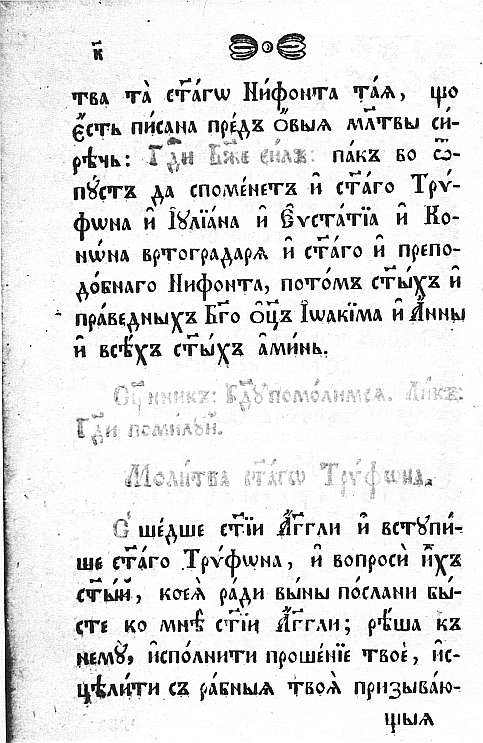 к҃
тва та̀ ст҃а́гѡ Ни́фонта та́ѧ, що
є҆́сть пи́сана пре́дъ ѻ҆́выѧ мл҃твы си́-
рѣчь: Гд҃и Бж҃е си́лъ: па́къ во ѿ-
пꙋ́стъ да споме́нетъ и҆ ст҃а́го Трѵ́-
фѡна и҆ Іꙋлїа́на и҆ Є҆ѵста́тїа и҆ Ко-
нѡ́на вртоградарѧ и҆ ст҃а́го и҆ препо-
до́бнаго Нифонта, пото́мъ ст҃ы́хъ и҆
пра́ведныхъ Бг҃о ѻ҆ц҃ъ І҆ѡаки́ма и҆ А҆́нны
и҆ всѣ́хъ ст҃ы́хъ а҆ми́нь.
Сщ҃енникъ: Бг҃ꙋ помо́лимсѧ. Ли́къ:
Гд҃и поми́лꙋй.
Моли́тва ст҃а́гѡ Трѵ́фѡна.
С шє́дше ст҃і́и А҆́гг҃ли и҆ встꙋпи́-
ше ст҃а́го Трѵ́фѡна, и҆ вопросѝ и҆́хъ
ст҃ы́й, коеѧ̀ ра́ди выны по́слани бы́-
сте ко мнѣ̀ ст҃і́и А҆́гг҃ли; рѣ́ша къ
немꙋ̀, и҆спо́лнити проше́нїе твоѐ, и҆с-
цѣли́ти съ ра́бныѧ твоѧ̀ призыва́ю-
щыѧ